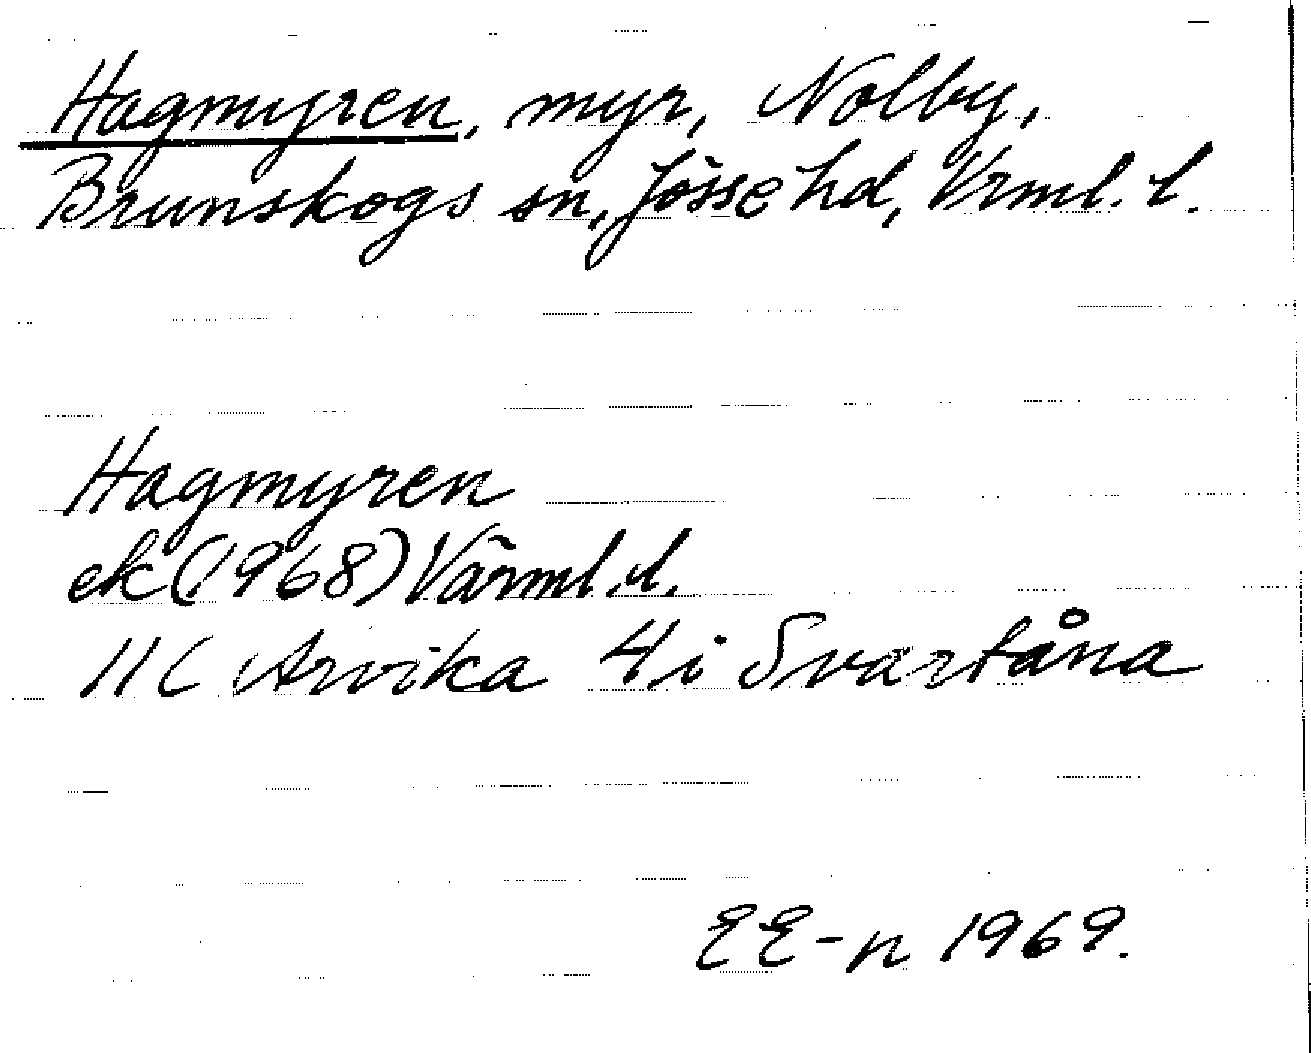 Hagmyren, myr, Nolby,
Brunskogs sn, Jösse hd, Vrml. l.
Hagmyren
ek (1968) Värml. l.
11C Arvika 4i Svartåna
EE-n 1969.